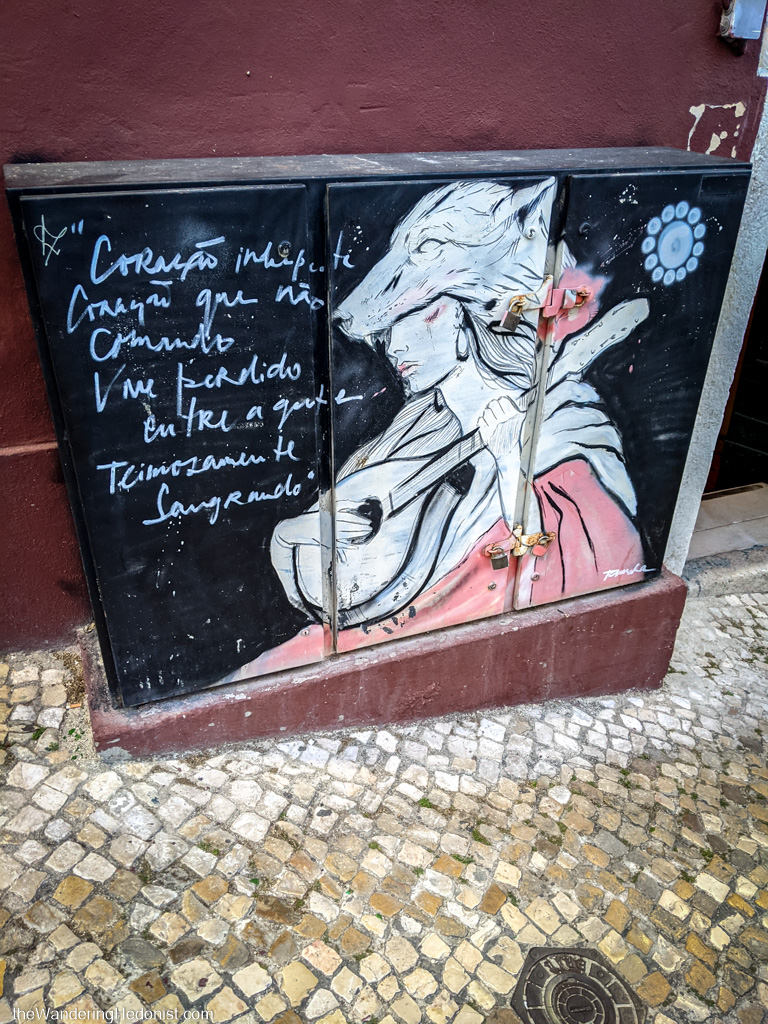 "Coração independente
Coração que não
Comando
Vive perdido
entre a gente
Teimosamente
Sangrando"
theWanderingHedonist.com